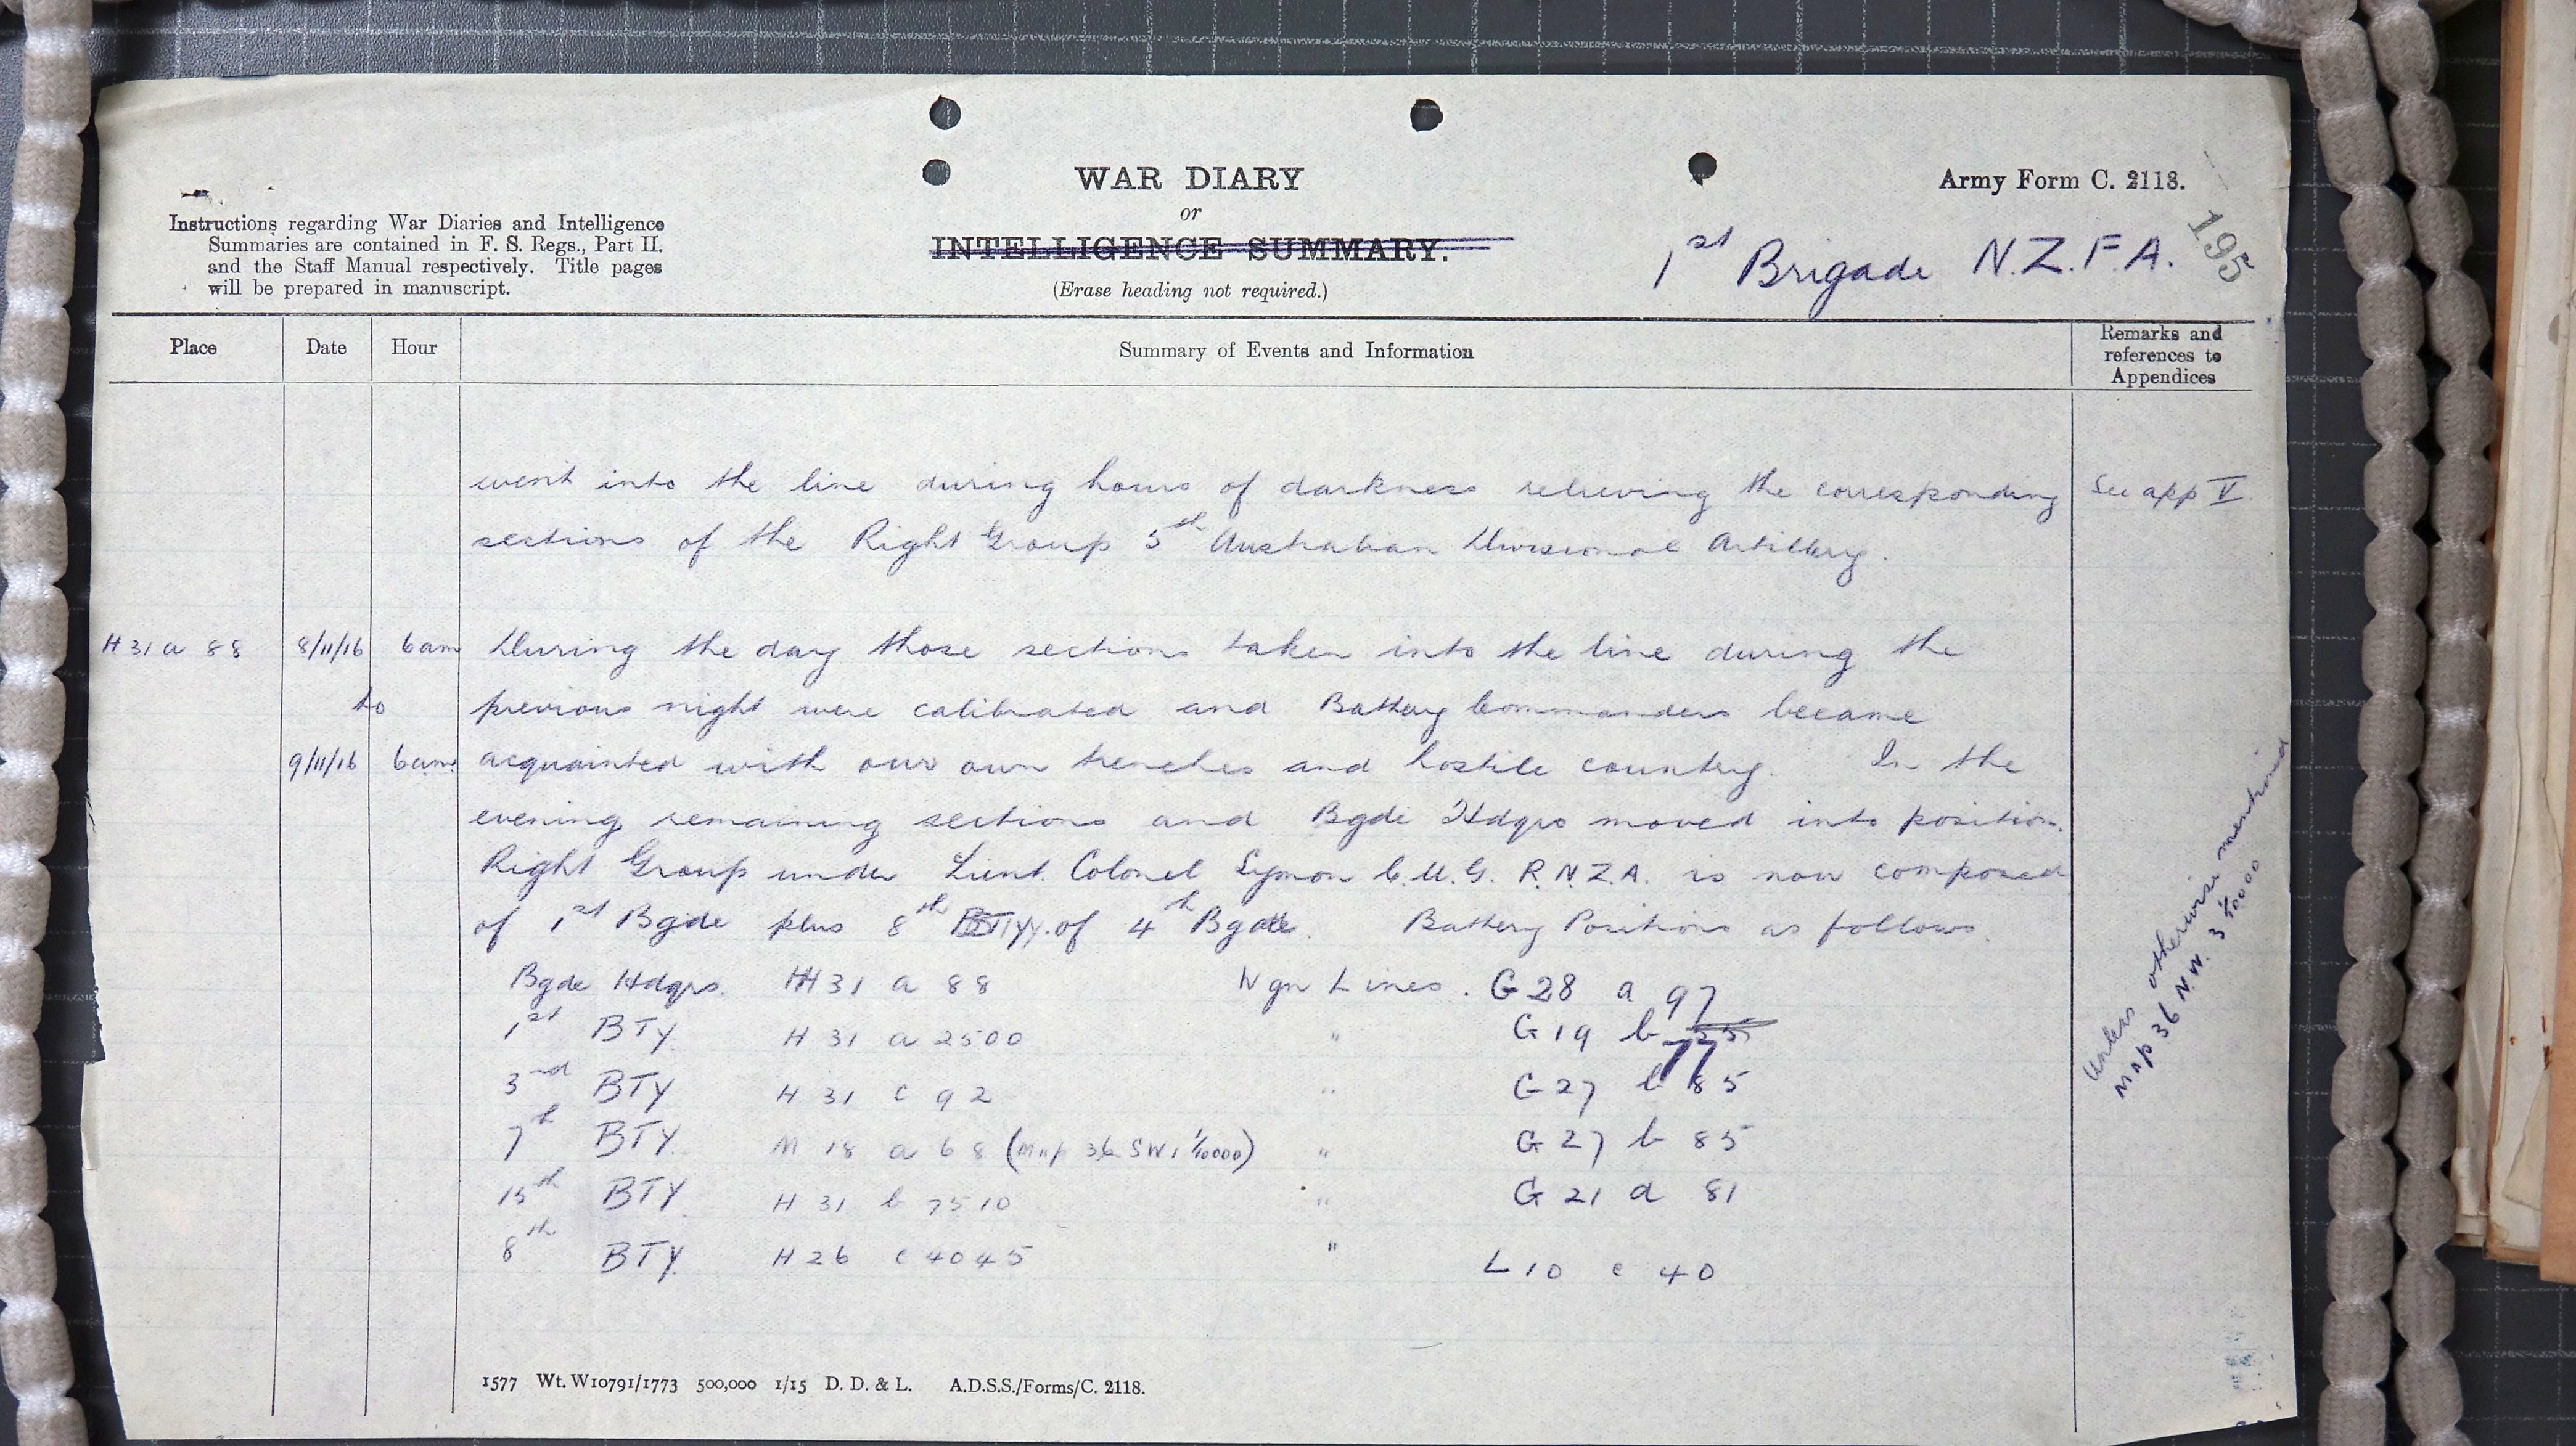 WAR DIARY
or
INTELLIGENCE SUMMARY.
(Erase heading not required.)
Army Form C. 2118.
195
1st Brigade N.Z.F.A.
Instructions regarding War Diaries and Intelligence
Summaries are contained in F. S. Regs., Part II.
and the Staff Manual respectively. Title pages
will be prepared in manuscript.
Place Date Hour Summary of Events and Information Remarks and references to Appendices
went into the line during hours of darkness relieving the corresponding See app V
sections of the Right Group 5th Australian Divisional Artillery.
H 31 a 88 8/11/16 6am During the day those sections taken into the line during the
to previous night were calibrated and Battery Commanders became
9/11/16 6am. acquainted with our own trenches and hostile country. In the
evening remaining sections and Bgde Hdqrs moved into position.
Right Group under Lieut. Colonel Symon C.M.G. R.N.Z.A. is now composed
of 1st Bgde plus 8th BTYY. of 4th Bgde. Battery Positions as follows.
Bgde Hdqrs. H 31 a 88 Wgn Lines. G 28 a 97
1st BTY. H 31 a 2500 " G 19 b 55 77
3rd BTY H 31 c 92 " G 27 b 85
7th BTY. M 18 a 68 (Map 36 SW 1 1/10000) " G 27 b 85
15th BTY. H 31 b 7510 " G 21 d 81
8th BTY. H 26 c 4045 " L 10 c 40
Unless otherwise mentioned
Map 36 N.W. 3 1/10000
1577 Wt. W10791/1773 500,000 1/15 D. D. & L. A.D.S.S./Forms/C. 2118.